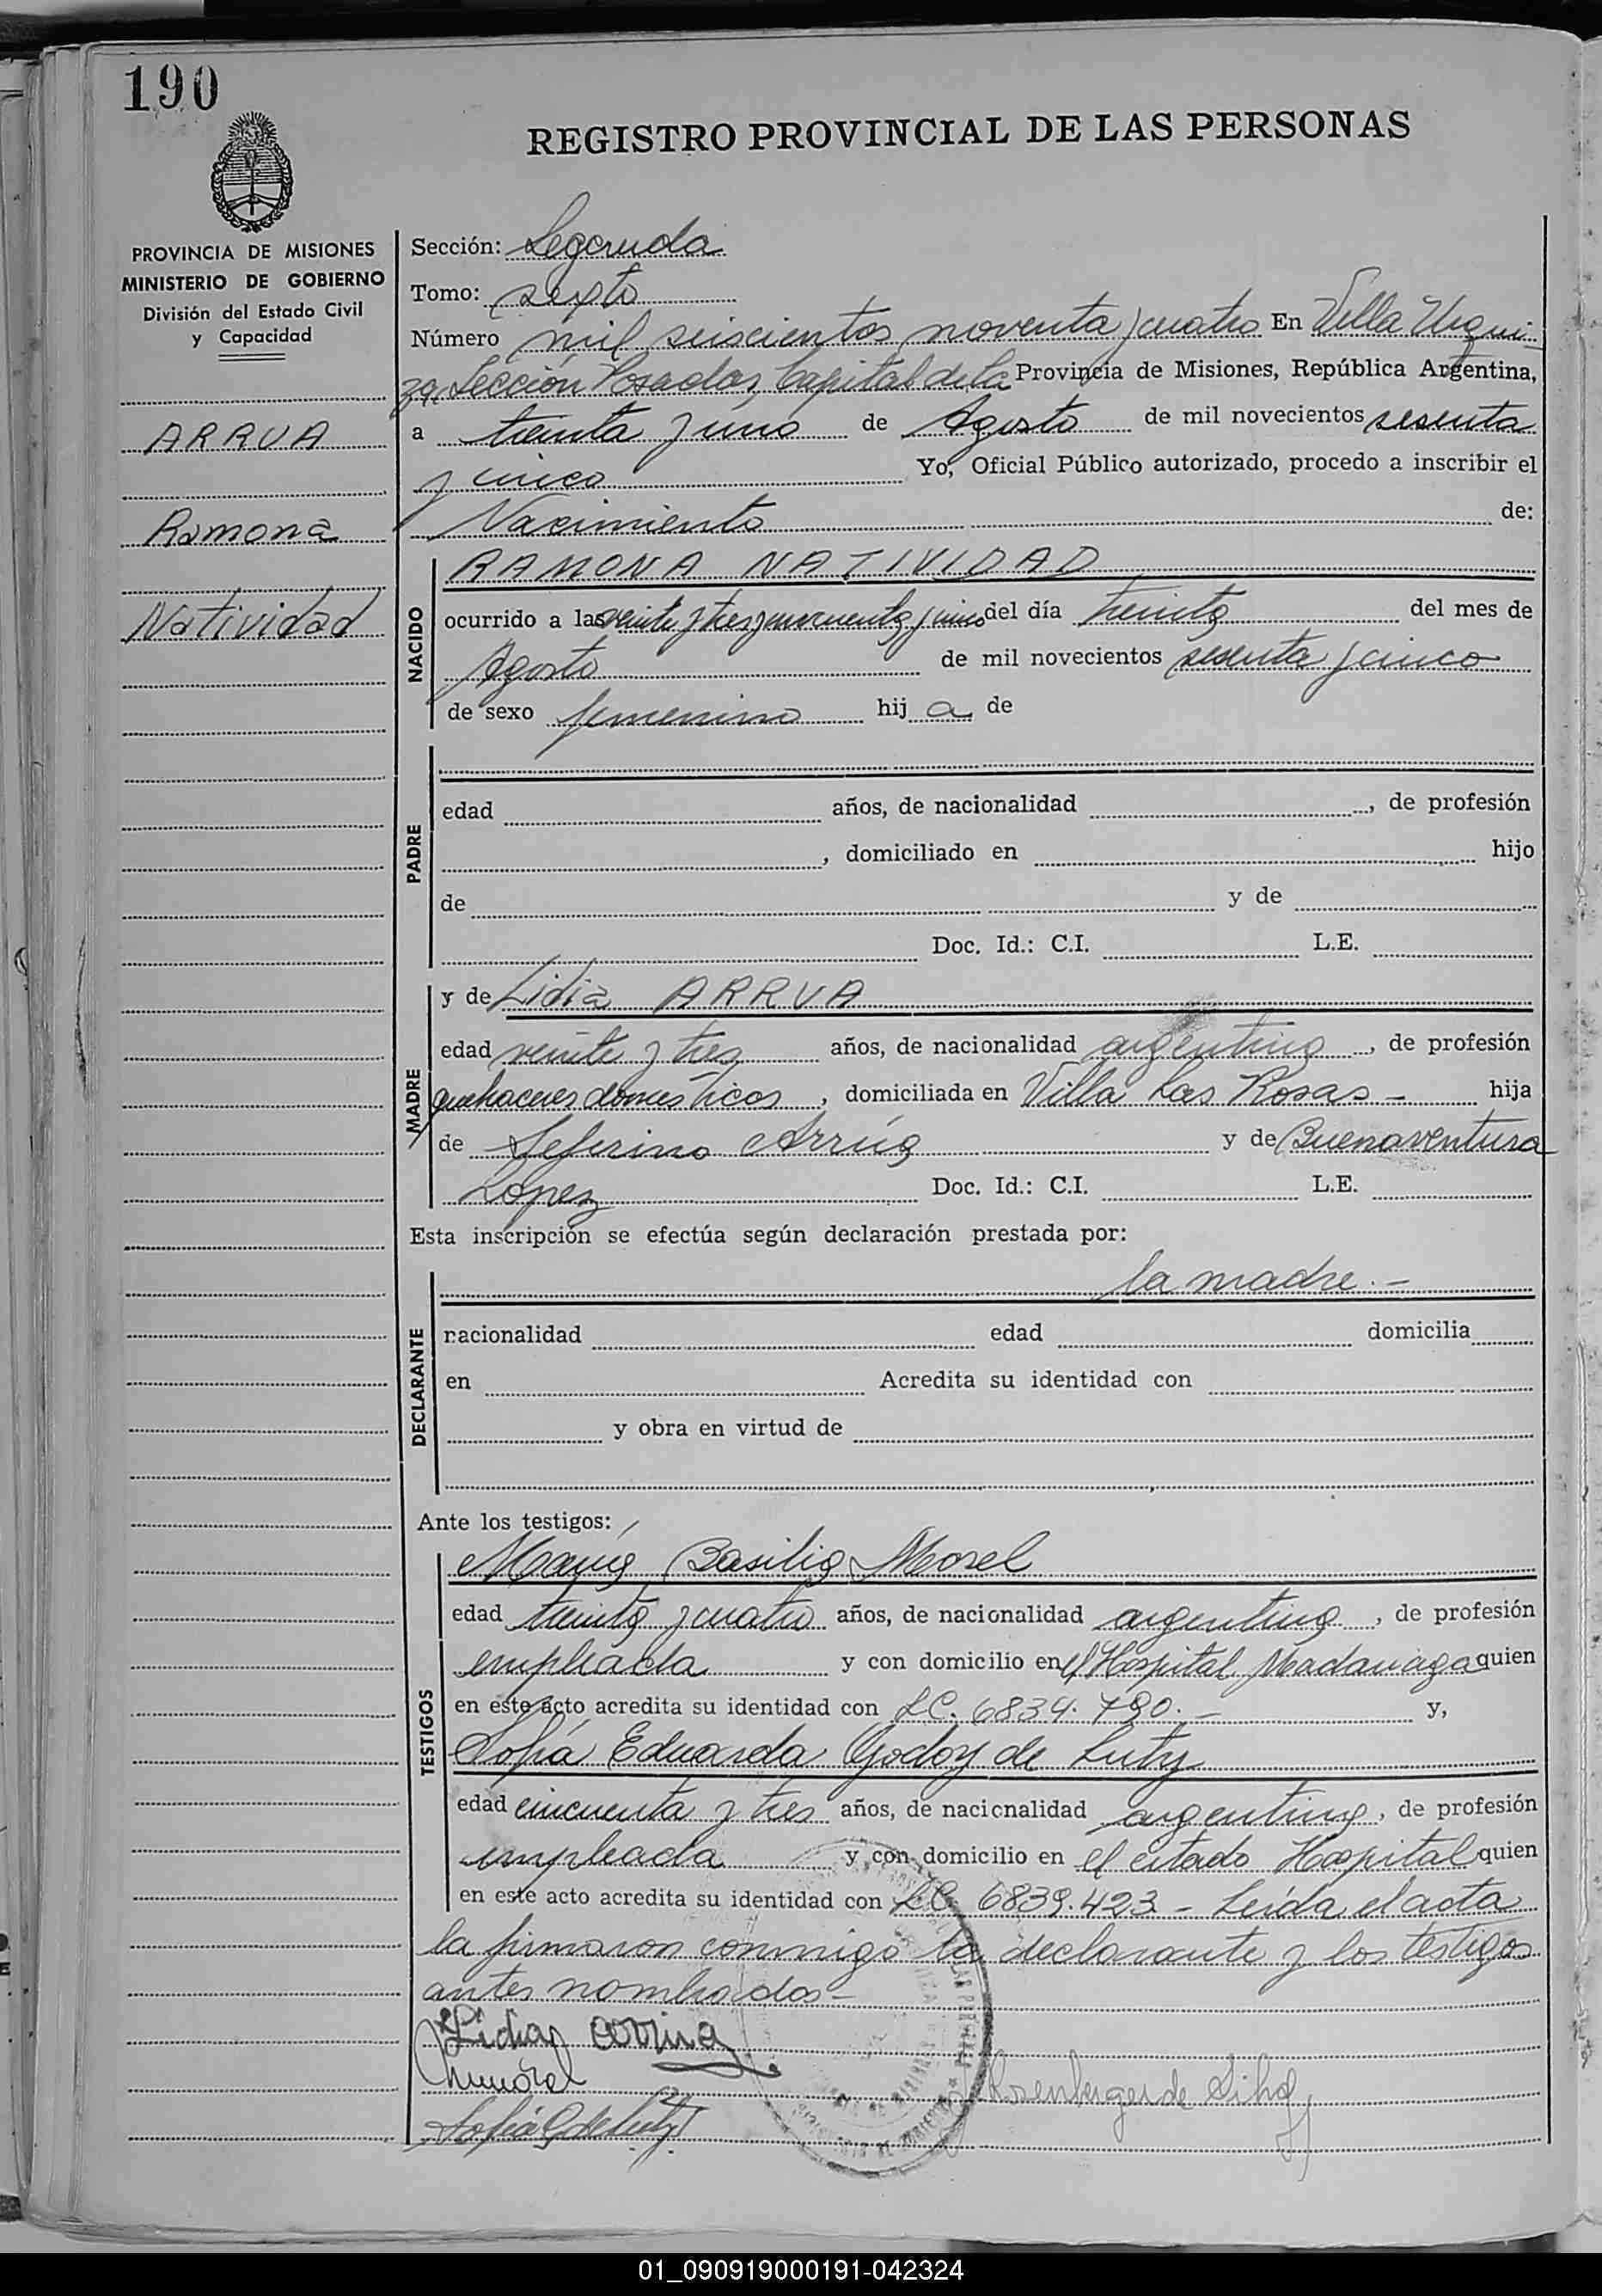 190
REGISTRO PROVINCIAL DE LAS PERSONAS
PROVINCIA DE MISIONES
MINISTERIO DE GOBIERNO
División del Estado Civil
y Capacidad
ARRUA
Ramona
Natividad
Sección: Segunda
Tomo: sexto
Número mil seiscientos noventa y cuatro En Villa Urqui-
za, Sección Posadas, Capital de la Provincia de Misiones, República Argentina,
a treinta y uno de Agosto de mil novecientos sesenta
y cinco Yo, Oficial Público autorizado, procedo a inscribir el
Nacimiento de:
NACIDO
RAMONA NATIVIDAD
ocurrido a las veinte y tres y cincuenta y cinco del día treinta del mes de
Agosto de mil novecientos sesenta y cinco
de sexo femenino hij a de
PADRE
edad años, de nacionalidad , de profesión
, domiciliado en hijo
de y de
Doc. Id.: C.I. L.E.
MADRE
y de Lidia ARRUA
edad veinte y tres años, de nacionalidad argentina , de profesión
quehaceres domésticos , domiciliada en Villa Las Rosas - hija
de Seferino Arrúa y de Buenaventura
Lopez Doc. Id.: C.I. L.E.
Esta inscripción se efectúa según declaración prestada por:
la madre.-
DECLARANTE
nacionalidad edad domicilia
en Acredita su identidad con
y obra en virtud de
Ante los testigos:
TESTIGOS
María Basilia Morel
edad treinta y cuatro años, de nacionalidad argentina , de profesión
empleada y con domicilio en el Hospital Madariaga quien
en este acto acredita su identidad con LC. 6834.790.- y,
Sofía Eduarda Godoy de Lutz
edad cincuenta y tres años, de nacionalidad argentina, de profesión
empleada y con domicilio en el citado Hospital quien
en este acto acredita su identidad con LC. 6839.423 - Leída el acta
la firmaron conmigo la declarante y los testigos
antes nombrados-
Lidia arrua
Morel
Sofía G de Lutz
Rosenberger de Silva
01_090919000191-042324